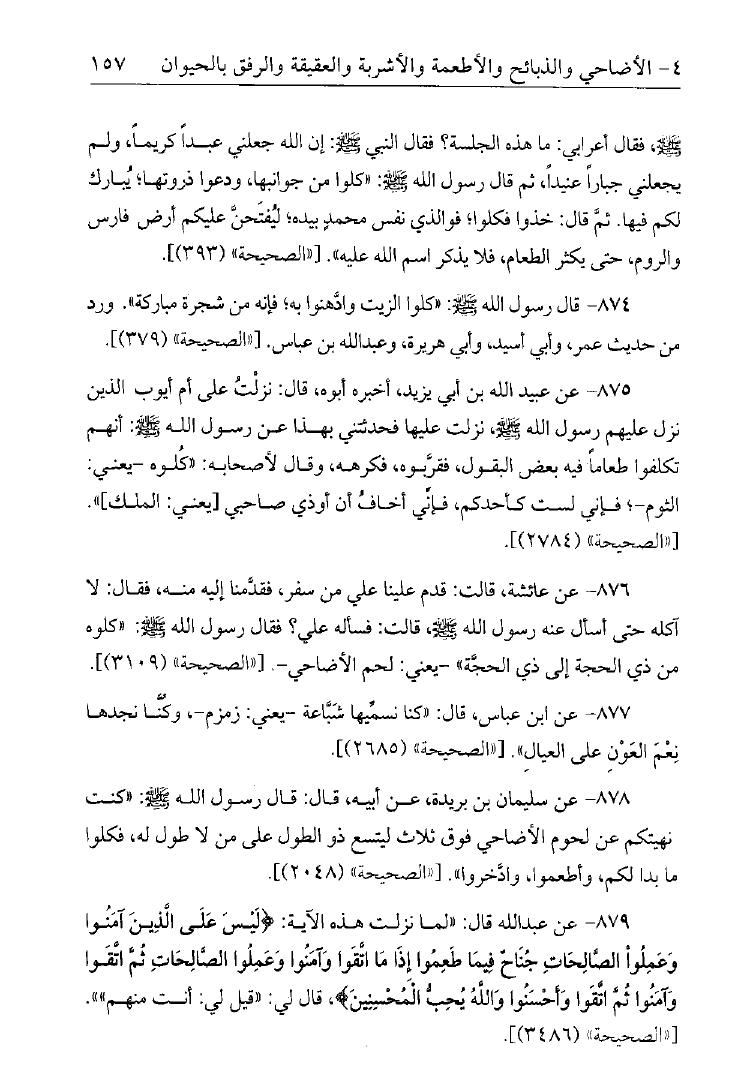 ٤- الأضاحي والذبائح والأطعمة والأشربة والعقيقة والرفق بالحيوان ١٥٧
ﷺ، فقال أعرابي: ما هذه الجلسة؟ فقال النبي ﷺ: إن الله جعلني عبداً كريماً، ولم
يجعلني جباراً عنيداً، ثم قال رسول الله ﷺ: «كلوا من جوانبها، ودعوا ذروتها؛ يُبارك
لكم فيها. ثمَّ قال: خذوا فكلوا؛ فوالذي نفس محمدٍ بيده؛ ليُفتَحنَّ عليكم أرض فارس
والروم، حتى يكثر الطعام، فلا يذكر اسم الله عليه». [«الصحيحة» (٣٩٣)].
٨٧٤- قال رسول الله ﷺ: «كلوا الزيت وادَّهنوا به؛ فإنه من شجرة مباركة». ورد
من حديث عمر، وأبي أسيد، وأبي هريرة، وعبدالله بن عباس. [«الصحيحة» (٣٧٩)].
٨٧٥- عن عبيد الله بن أبي يزيد، أخبره أبوه، قال: نزلْتُ على أم أيوب الذين
نزل عليهم رسول الله ﷺ، نزلت عليها فحدثتني بهذا عن رسول الله ﷺ: أنهم
تكلفوا طعاماً فيه بعض البقول، فقرَّبوه، فكرهه، وقال لأصحابه: «كُلوه -يعني:
الثوم-؛ فإني لست كأحدكم، فإنِّي أخافُ أن أوذي صاحبي [يعني: الملك]».
[«الصحيحة» (٢٧٨٤)].
٨٧٦- عن عائشة، قالت: قدم علينا علي من سفر، فقدَّمنا إليه منه، فقال: لا
آكله حتى أسأل عنه رسول الله ﷺ، قالت: فسأله علي؟ فقال رسول الله ﷺ: «كلوه
من ذي الحجة إلى ذي الحجَّة» -يعني: لحم الأضاحي-. [«الصحيحة» (٣١٠٩)].
٨٧٧- عن ابن عباس، قال: «كنا نسمِّيها شَبَّاعة -يعني: زمزم-، وكنَّا نجدها
نِعْمَ العَوْنِ على العيال». [«الصحيحة» (٢٦٨٥)].
٨٧٨- عن سليمان بن بريدة، عن أبيه، قال: قال رسول الله ﷺ: «كنت
نهيتكم عن لحوم الأضاحي فوق ثلاث ليتسع ذو الطول على من لا طول له، فكلوا
ما بدا لكم، وأطعموا، وادَّخروا». [«الصحيحة» (٢٠٤٨)].
٨٧٩- عن عبدالله قال: «لما نزلت هذه الآية: ﴿لَيْسَ عَلَى الَّذِينَ آمَنُوا
وَعَمِلُواْ الصَّالِحَاتِ جُنَاحٌ فِيمَا طَعِمُوا إِذَا مَا اتَّقَوا وَآمَنُوا وَعَمِلُوا الصَّالِحَاتِ ثُمَّ اتَّقَوا
وَآمَنُوا ثُمَّ اتَّقَوا وَأَحْسَنُوا وَاللَّهُ يُحِبُّ الْمُحْسِنِينَ﴾، قال لي: «قيل لي: أنت منهم»».
[«الصحيحة» (٣٤٨٦)].